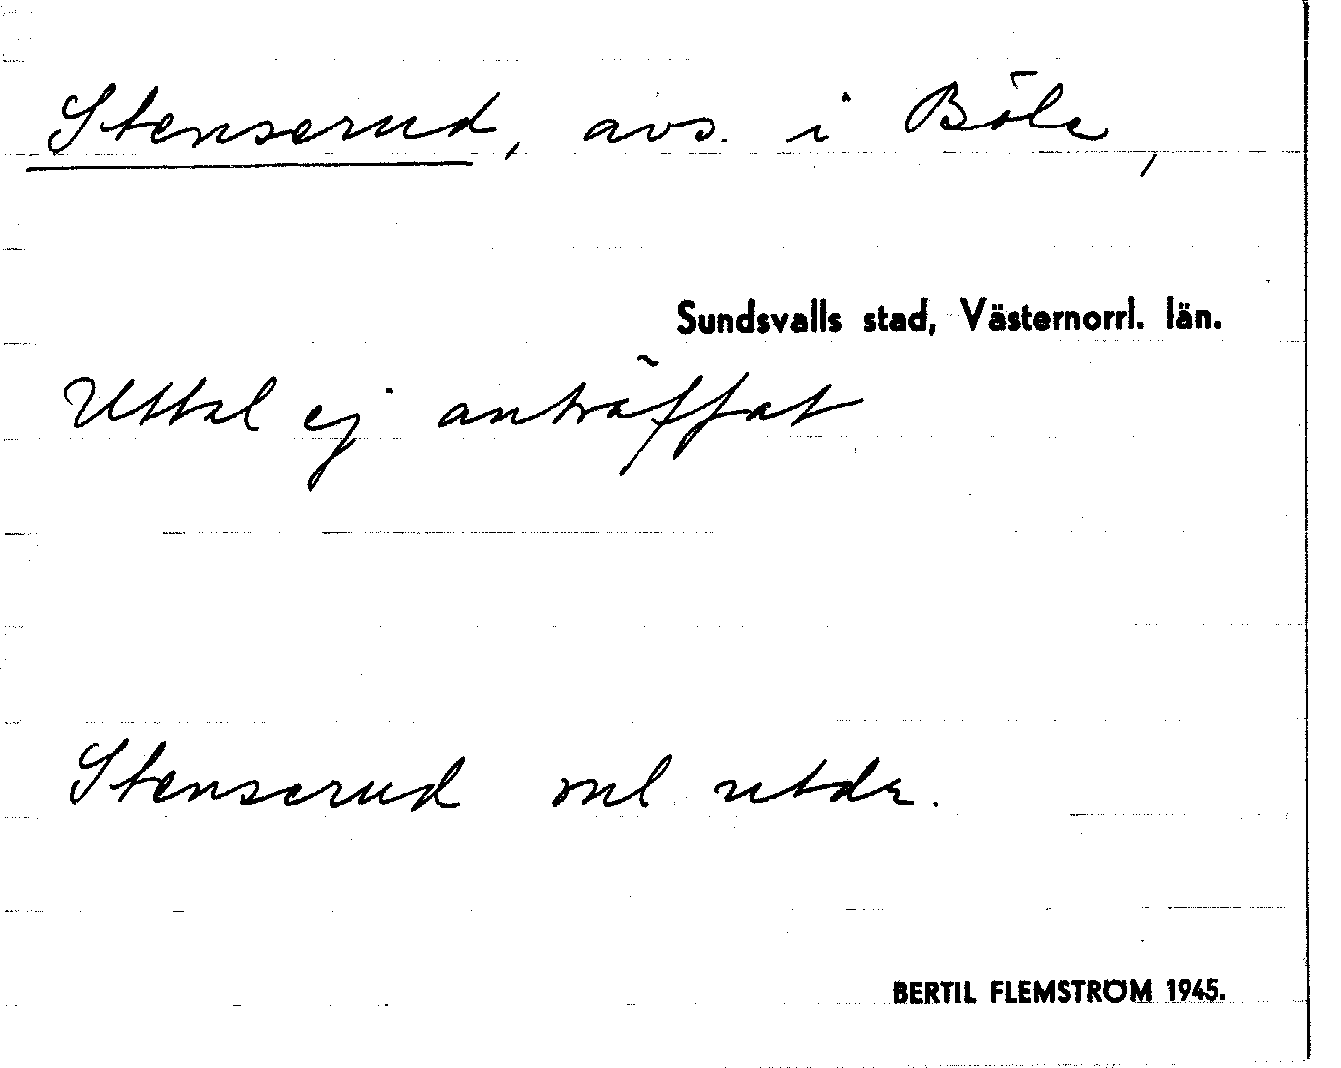 Stenserud, avs. i Böle,
Sundsvalls stad, Västernorrl. län.
Uttal ej anträffat
Stenserud enl utdr.
BERTIL FLEMSTRÖM 1945.